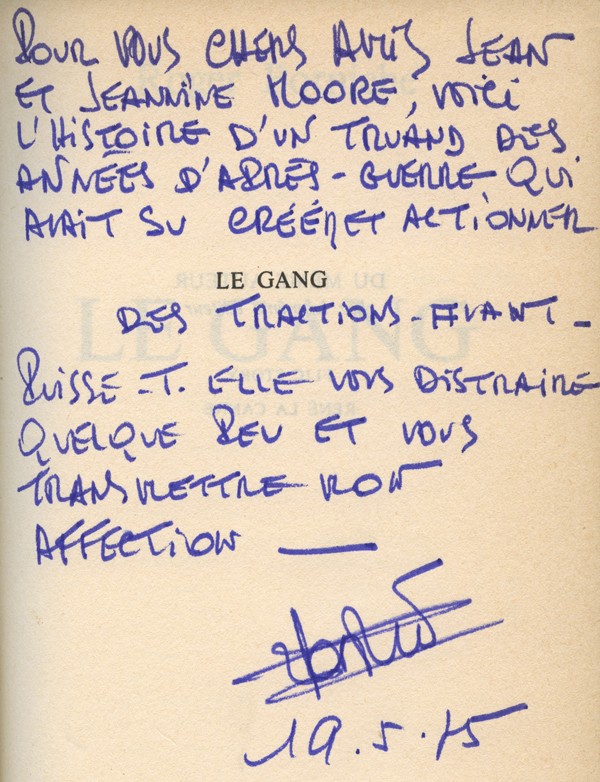 POUR VOUS CHERS AMIS JEAN
ET JEANNINE MOORE, VOICI
L'HISTOIRE D'UN TRUAND DES
ANNÉES D'APRÈS-GUERRE QUI
AVAIT SU CRÉER ET ACTIONNER
LE GANG
DES TRACTIONS-AVANT -
PUISSE-T-ELLE VOUS DISTRAIRE
QUELQUE PEU ET VOUS
TRANSMETTRE MON
AFFECTION —
19.5.75